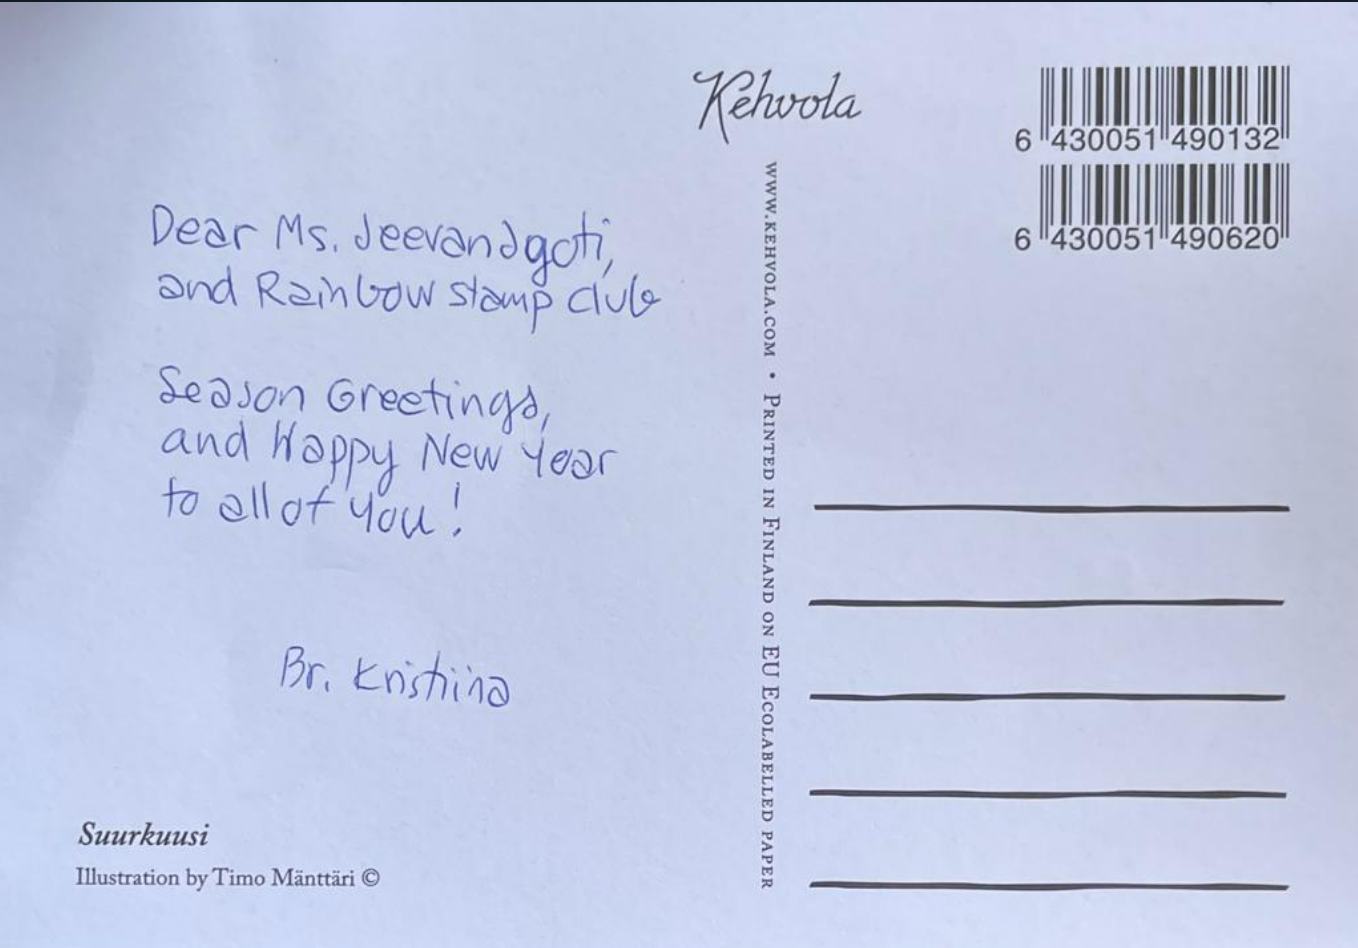 Kehvola
6 430051 490132
6 430051 490620
Dear Ms. Jeevandgoti,
and Rainbow stamp club
Season Greetings,
and Happy New Year
to all of you!
Br. Kristiina
Suurkuusi
Illustration by Timo Mänttäri ©
WWW.KEHVOLA.COM • PRINTED IN FINLAND ON EU ECOLABELLED PAPER